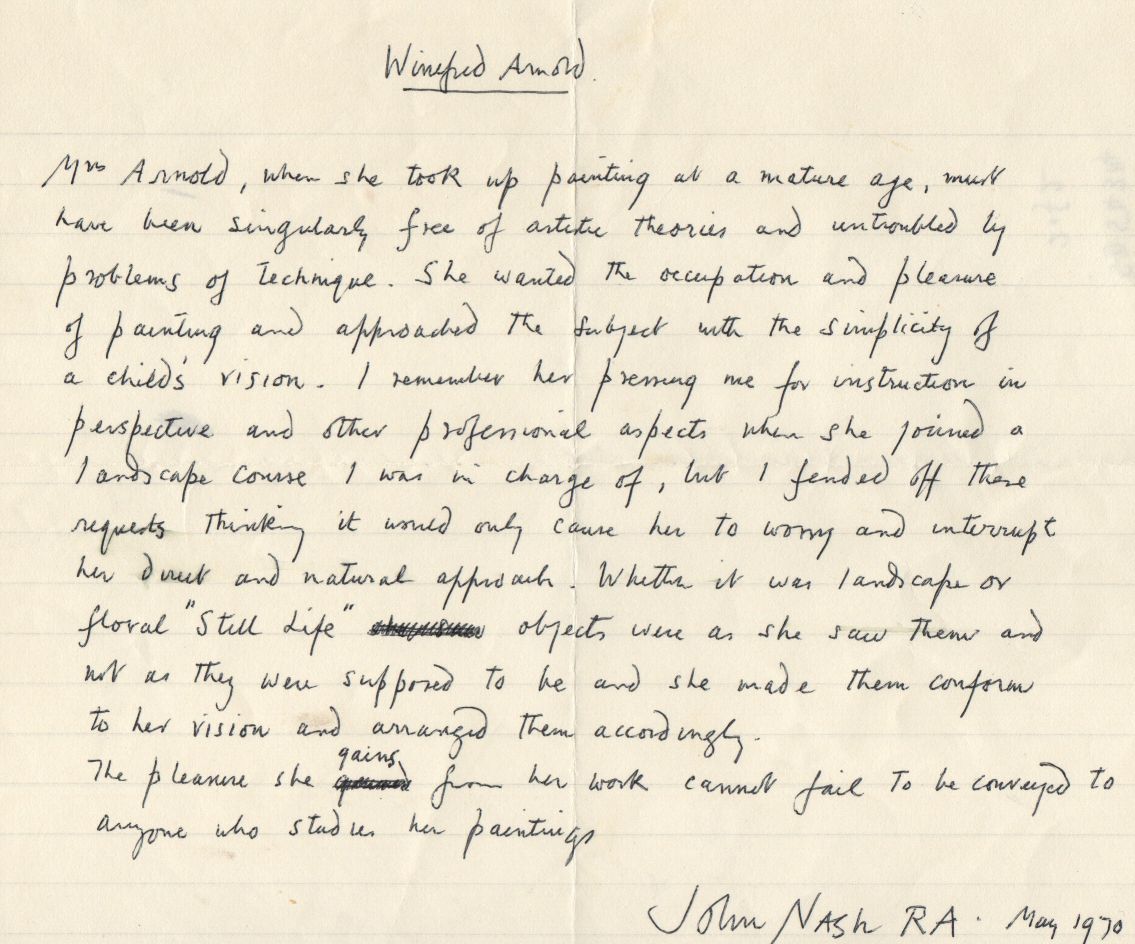 Winifred Arnold.
Mrs Arnold, when she took up painting at a mature age, must
have been singularly free of artistic theories and untroubled by
problems of technique. She wanted the occupation and pleasure
of painting and approached the subject with the simplicity of
a child's vision. I remember her pressing me for instruction in
perspective and other professional aspects when she joined a
landscape course I was in charge of, but I fended off these
requests thinking it would only cause her to worry and interrupt
her direct and natural approach. Whether it was landscape or
floral "Still Life" objects were as she saw them and
not as they were supposed to be and she made them conform
to her vision and arranged them accordingly.
The pleasure she gains from her work cannot fail to be conveyed to
anyone who studies her paintings
John Nash RA. May 1970